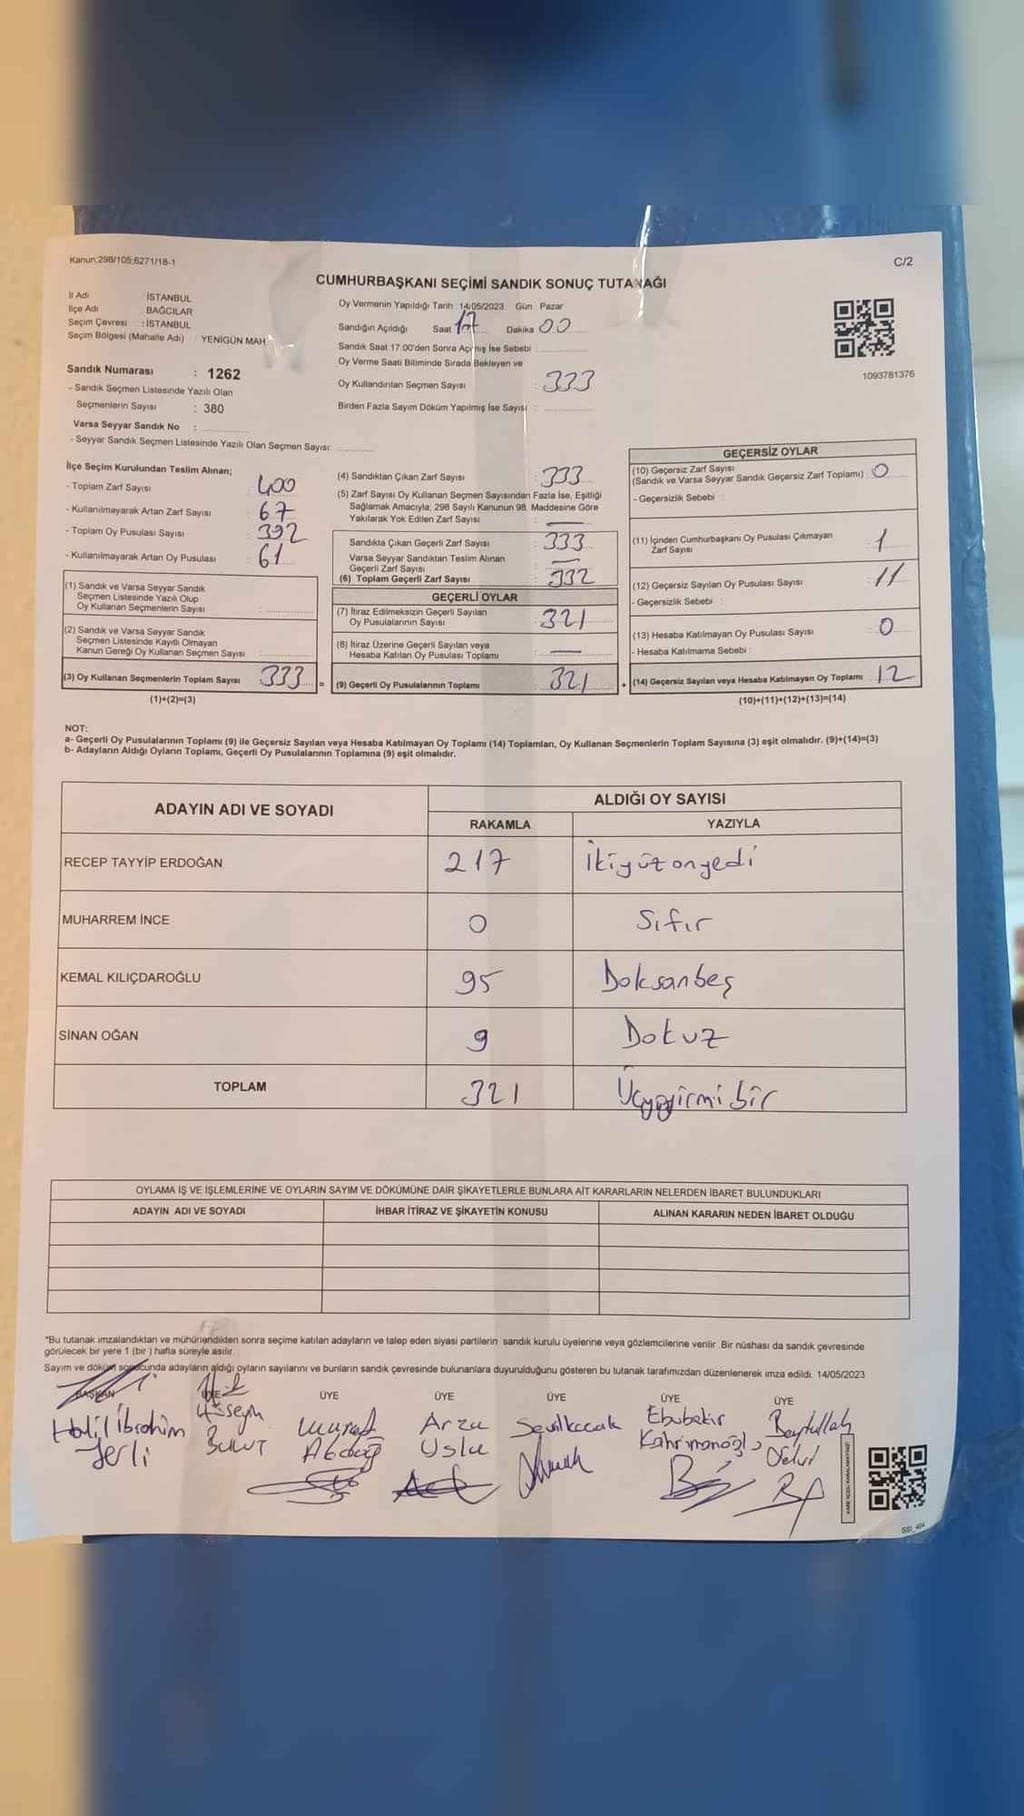 Kanun;298/105;6271/18-1
C/2
CUMHURBAŞKANI SEÇİMİ SANDIK SONUÇ TUTANAĞI
İl Adı İSTANBUL
İlçe Adı BAĞCILAR
Seçim Çevresi : İSTANBUL
Seçim Bölgesi (Mahalle Adı) YENİGÜN MAH.
Sandık Numarası : 1262
- Sandık Seçmen Listesinde Yazılı Olan
Seçmenlerin Sayısı : 380
Varsa Seyyar Sandık No :
- Seyyar Sandık Seçmen Listesinde Yazılı Olan Seçmen Sayısı:
Oy Vermenin Yapıldığı Tarih : 14/05/2023 Gün : Pazar
Sandığın Açıldığı Saat 17 Dakika 00
Sandık Saat 17:00'den Sonra Açılmış İse Sebebi
Oy Verme Saati Bitiminde Sırada Bekleyen ve
Oy Kullandırılan Seçmen Sayısı : 333
Birden Fazla Sayım Döküm Yapılmış İse Sayısı :
1093781376
İlçe Seçim Kurulundan Teslim Alınan;
- Toplam Zarf Sayısı : 400
- Kullanılmayarak Artan Zarf Sayısı : 67
- Toplam Oy Pusulası Sayısı : 392
- Kullanılmayarak Artan Oy Pusulası : 61
(1) Sandık ve Varsa Seyyar Sandık
Seçmen Listesinde Yazılı Olup
Oy Kullanan Seçmenlerin Sayısı :
(2) Sandık ve Varsa Seyyar Sandık
Seçmen Listesinde Kayıtlı Olmayan
Kanun Gereği Oy Kullanan Seçmen Sayısı :
(3) Oy Kullanan Seçmenlerin Toplam Sayısı 333 =
(1)+(2)=(3)
(4) Sandıktan Çıkan Zarf Sayısı : 333
(5) Zarf Sayısı Oy Kullanan Seçmen Sayısından Fazla İse, Eşitliği
Sağlamak Amacıyla; 298 Sayılı Kanunun 98. Maddesine Göre
Yakılarak Yok Edilen Zarf Sayısı : —
Sandıkta Çıkan Geçerli Zarf Sayısı : 333
Varsa Seyyar Sandıktan Teslim Alınan
Geçerli Zarf Sayısı : —
(6) Toplam Geçerli Zarf Sayısı : 332
GEÇERLİ OYLAR
(7) İtiraz Edilmeksizin Geçerli Sayılan
Oy Pusulalarının Sayısı : 321
(8) İtiraz Üzerine Geçerli Sayılan veya
Hesaba Katılan Oy Pusulası Toplamı : —
(9) Geçerli Oy Pusulalarının Toplamı : 321 +
GEÇERSİZ OYLAR
(10) Geçersiz Zarf Sayısı
(Sandık ve Varsa Seyyar Sandık Geçersiz Zarf Toplamı) : 0
- Geçersizlik Sebebi :
(11) İçinden Cumhurbaşkanı Oy Pusulası Çıkmayan
Zarf Sayısı : 1
(12) Geçersiz Sayılan Oy Pusulası Sayısı : 11
- Geçersizlik Sebebi :
(13) Hesaba Katılmayan Oy Pusulası Sayısı : 0
- Hesaba Katılmama Sebebi :
(14) Geçersiz Sayılan veya Hesaba Katılmayan Oy Toplamı : 12
(10)+(11)+(12)+(13)=(14)
NOT:
a- Geçerli Oy Pusulalarının Toplamı (9) ile Geçersiz Sayılan veya Hesaba Katılmayan Oy Toplamı (14) Toplamları, Oy Kullanan Seçmenlerin Toplam Sayısına (3) eşit olmalıdır. (9)+(14)=(3)
b- Adayların Aldığı Oyların Toplamı, Geçerli Oy Pusulalarının Toplamına (9) eşit olmalıdır.
ADAYIN ADI VE SOYADI ALDIĞI OY SAYISI
RAKAMLA YAZIYLA
RECEP TAYYİP ERDOĞAN 217 İkiyüzonyedi
MUHARREM İNCE 0 Sıfır
KEMAL KILIÇDAROĞLU 95 Doksanbeş
SİNAN OĞAN 9 Dokuz
TOPLAM 321
OYLAMA İŞ VE İŞLEMLERİNE VE OYLARIN SAYIM VE DÖKÜMÜNE DAİR ŞİKAYETLERLE BUNLARA AİT KARARLARIN NELERDEN İBARET BULUNDUKLARI
ADAYIN ADI VE SOYADI İHBAR İTİRAZ VE ŞİKAYETİN KONUSU ALINAN KARARIN NEDEN İBARET OLDUĞU
*Bu tutanak imzalandıktan ve mühürlendikten sonra seçime katılan adayların ve talep eden siyasi partilerin sandık kurulu üyelerine veya gözlemcilerine verilir. Bir nüshası da sandık çevresinde
görülecek bir yere 1 (bir) hafta süreyle asılır.
Sayım ve döküm sonucunda adayların aldığı oyların sayılarını ve bunların sandık çevresinde bulunanlara duyurulduğunu gösteren bu tutanak tarafımızdan düzenlenerek imza edildi. 14/05/2023
BAŞKAN ÜYE ÜYE ÜYE ÜYE ÜYE ÜYE
Halil İbrahim Hüseyin Murat Arzu Ebubekir Beytullah
Yerli Bulut Uslu Kahrimanoğlu